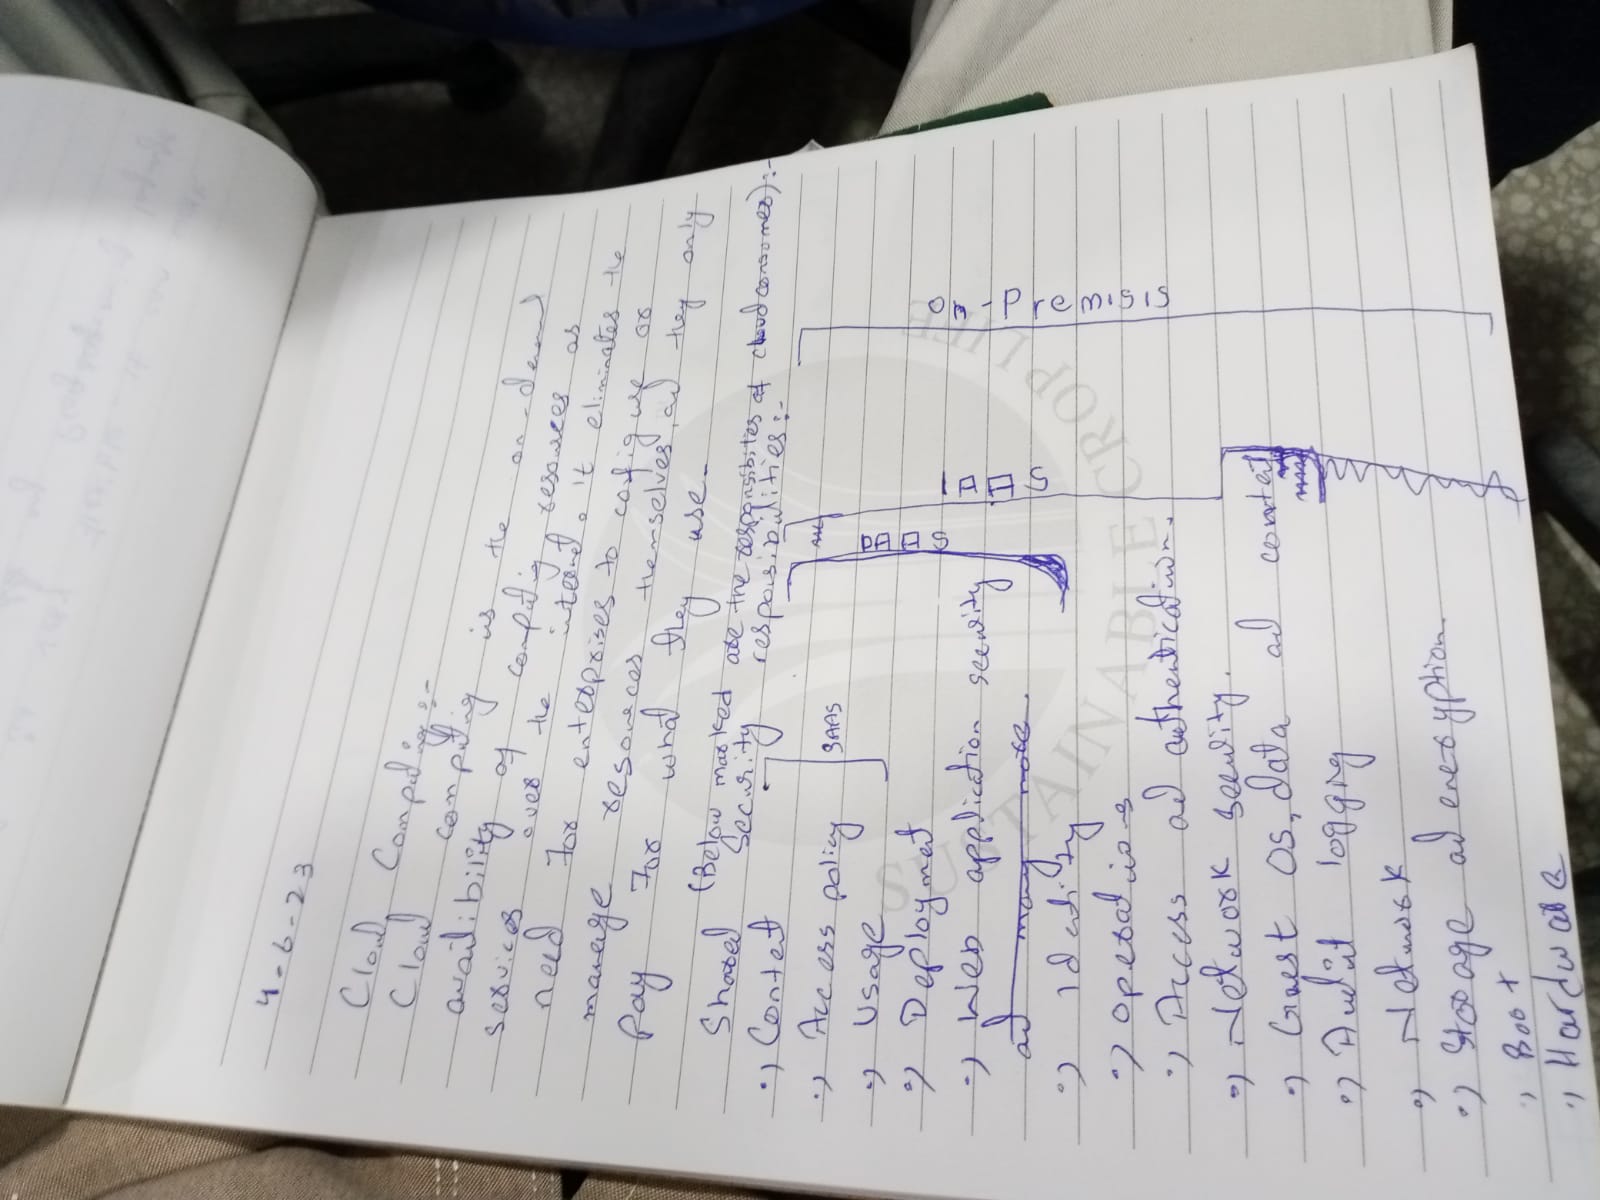 4-6-23
Cloud Computing:-
Cloud computing is the on-demand
availibility of computing resources as
services over the internet. it eliminates the
need for enterprises to configure or
manage resources themselves, and they only
Pay for what they use.
(Below marked are the responsibites of cloud consomes):-
Shared Security responsibilities:-
Content
Access policy
Usage
SAAS
Deployment
Web application security
and many more.
PAAS
Identity
Operations
Access and authentication.
Network security.
IAAS
Guest OS, data and content
Audit logging
Network
Storage and encryption
Boot
Hardware
On-Premisis
SUSTAINABLE CROP LIFE